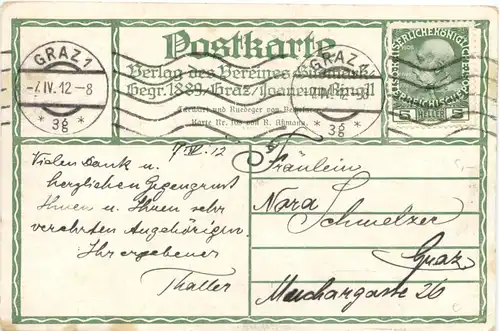 Postkarte
Verlag des Vereines Südmark
Gegr. 1889, Graz, Joanneumring 11
und Ruedeger von
Karte Nr. von R. Assmann.
GRAZ 1
-7.IV.12-8
* 3g *
GRAZ 1
IV.12-8
* 3g *
KAISERLICHE KÖNIGLICHE
ÖSTERREICHISCHE POST
5 HELLER 5
7/IV. 12
Vielen Dank u.
herzlichen Gegengruss
Ihnen u. Ihren sehr
verehrten Angehörigen
Ihr ergebener
Thaller
Fräulein
Nora Schmelzer
Graz
Muchargasse 26